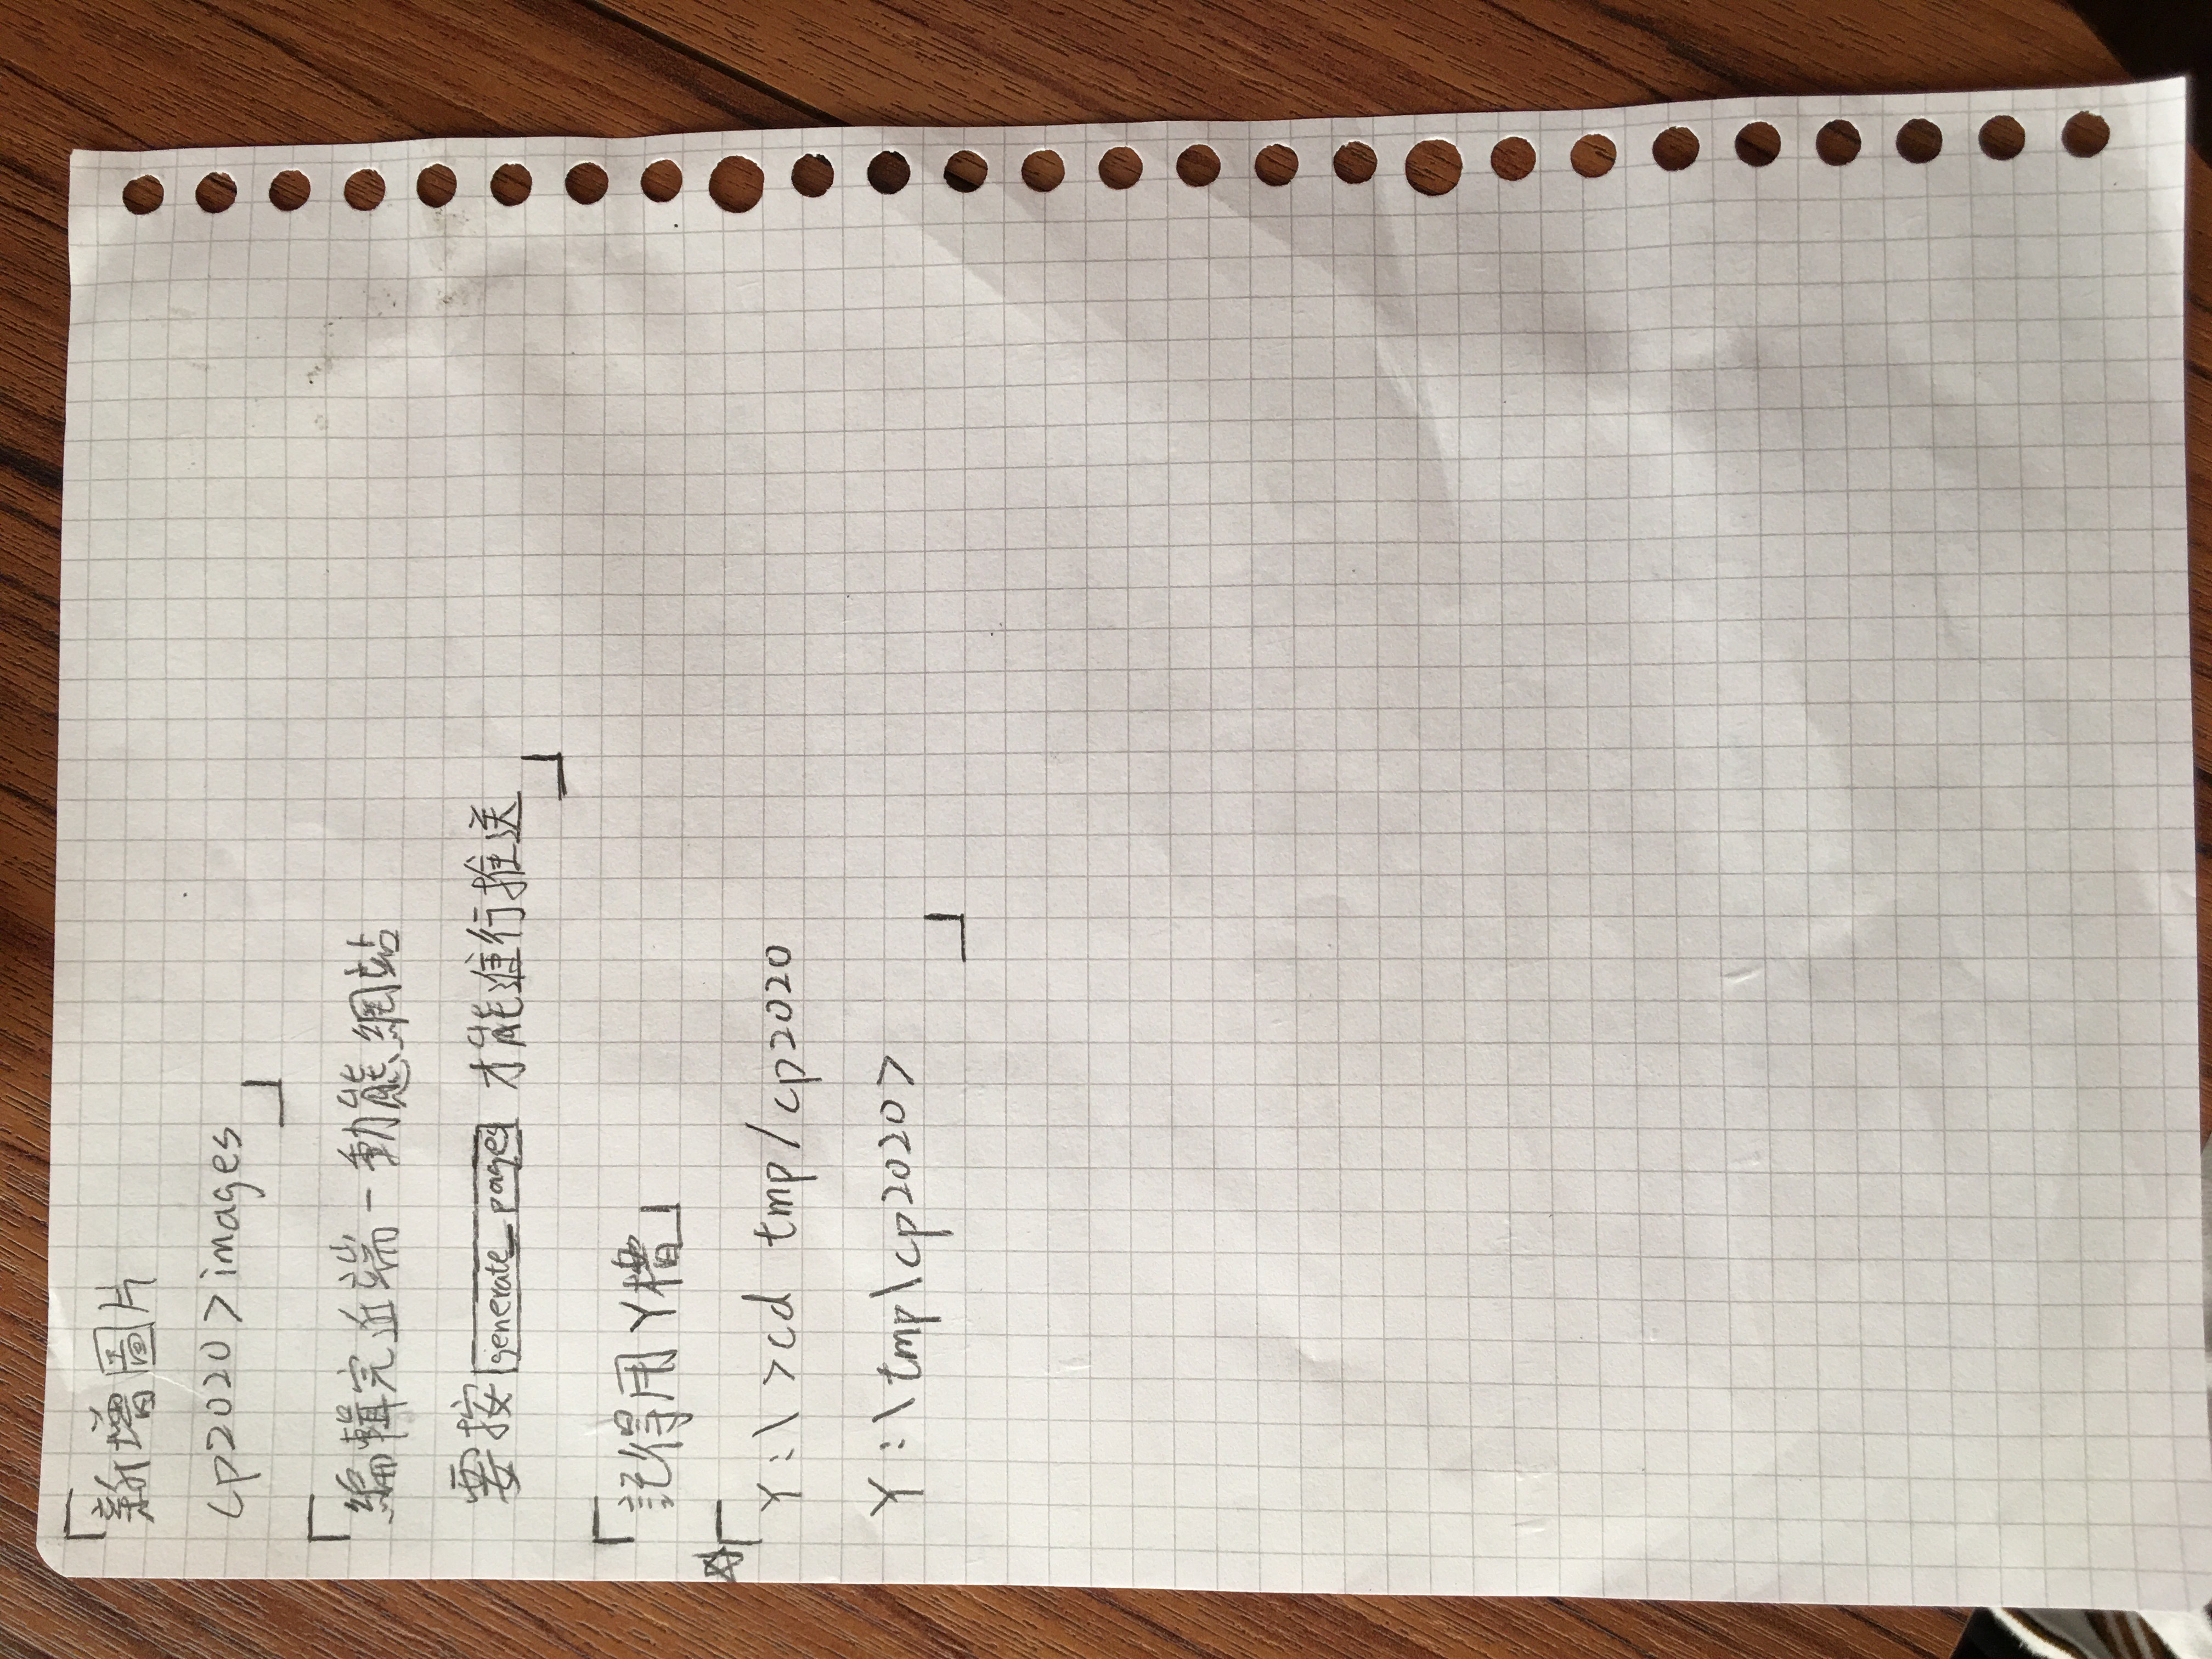 「新增圖片
cp2020>images」
「編輯完近端-動態網站
要按generate_pages 才能進行推送」
「記得用Y槽」
☆「
Y:\ >cd tmp/cp2020
Y:\tmp\cp2020>
」